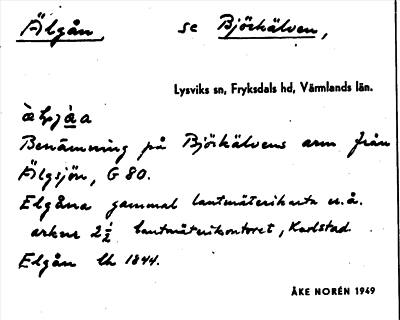 Älgån se Björkälven,
Lysviks sn, Fryksdals hd, Värmlands län.
Benämning på Björkälvens arm från
Älgsjön, G 80.
Elgåna gammal lantmäterikarta u.å.
arken 2½ lantmäterikontoret, Karlstad.
Elgån lk 1844.
ÅKE NORÉN 1949